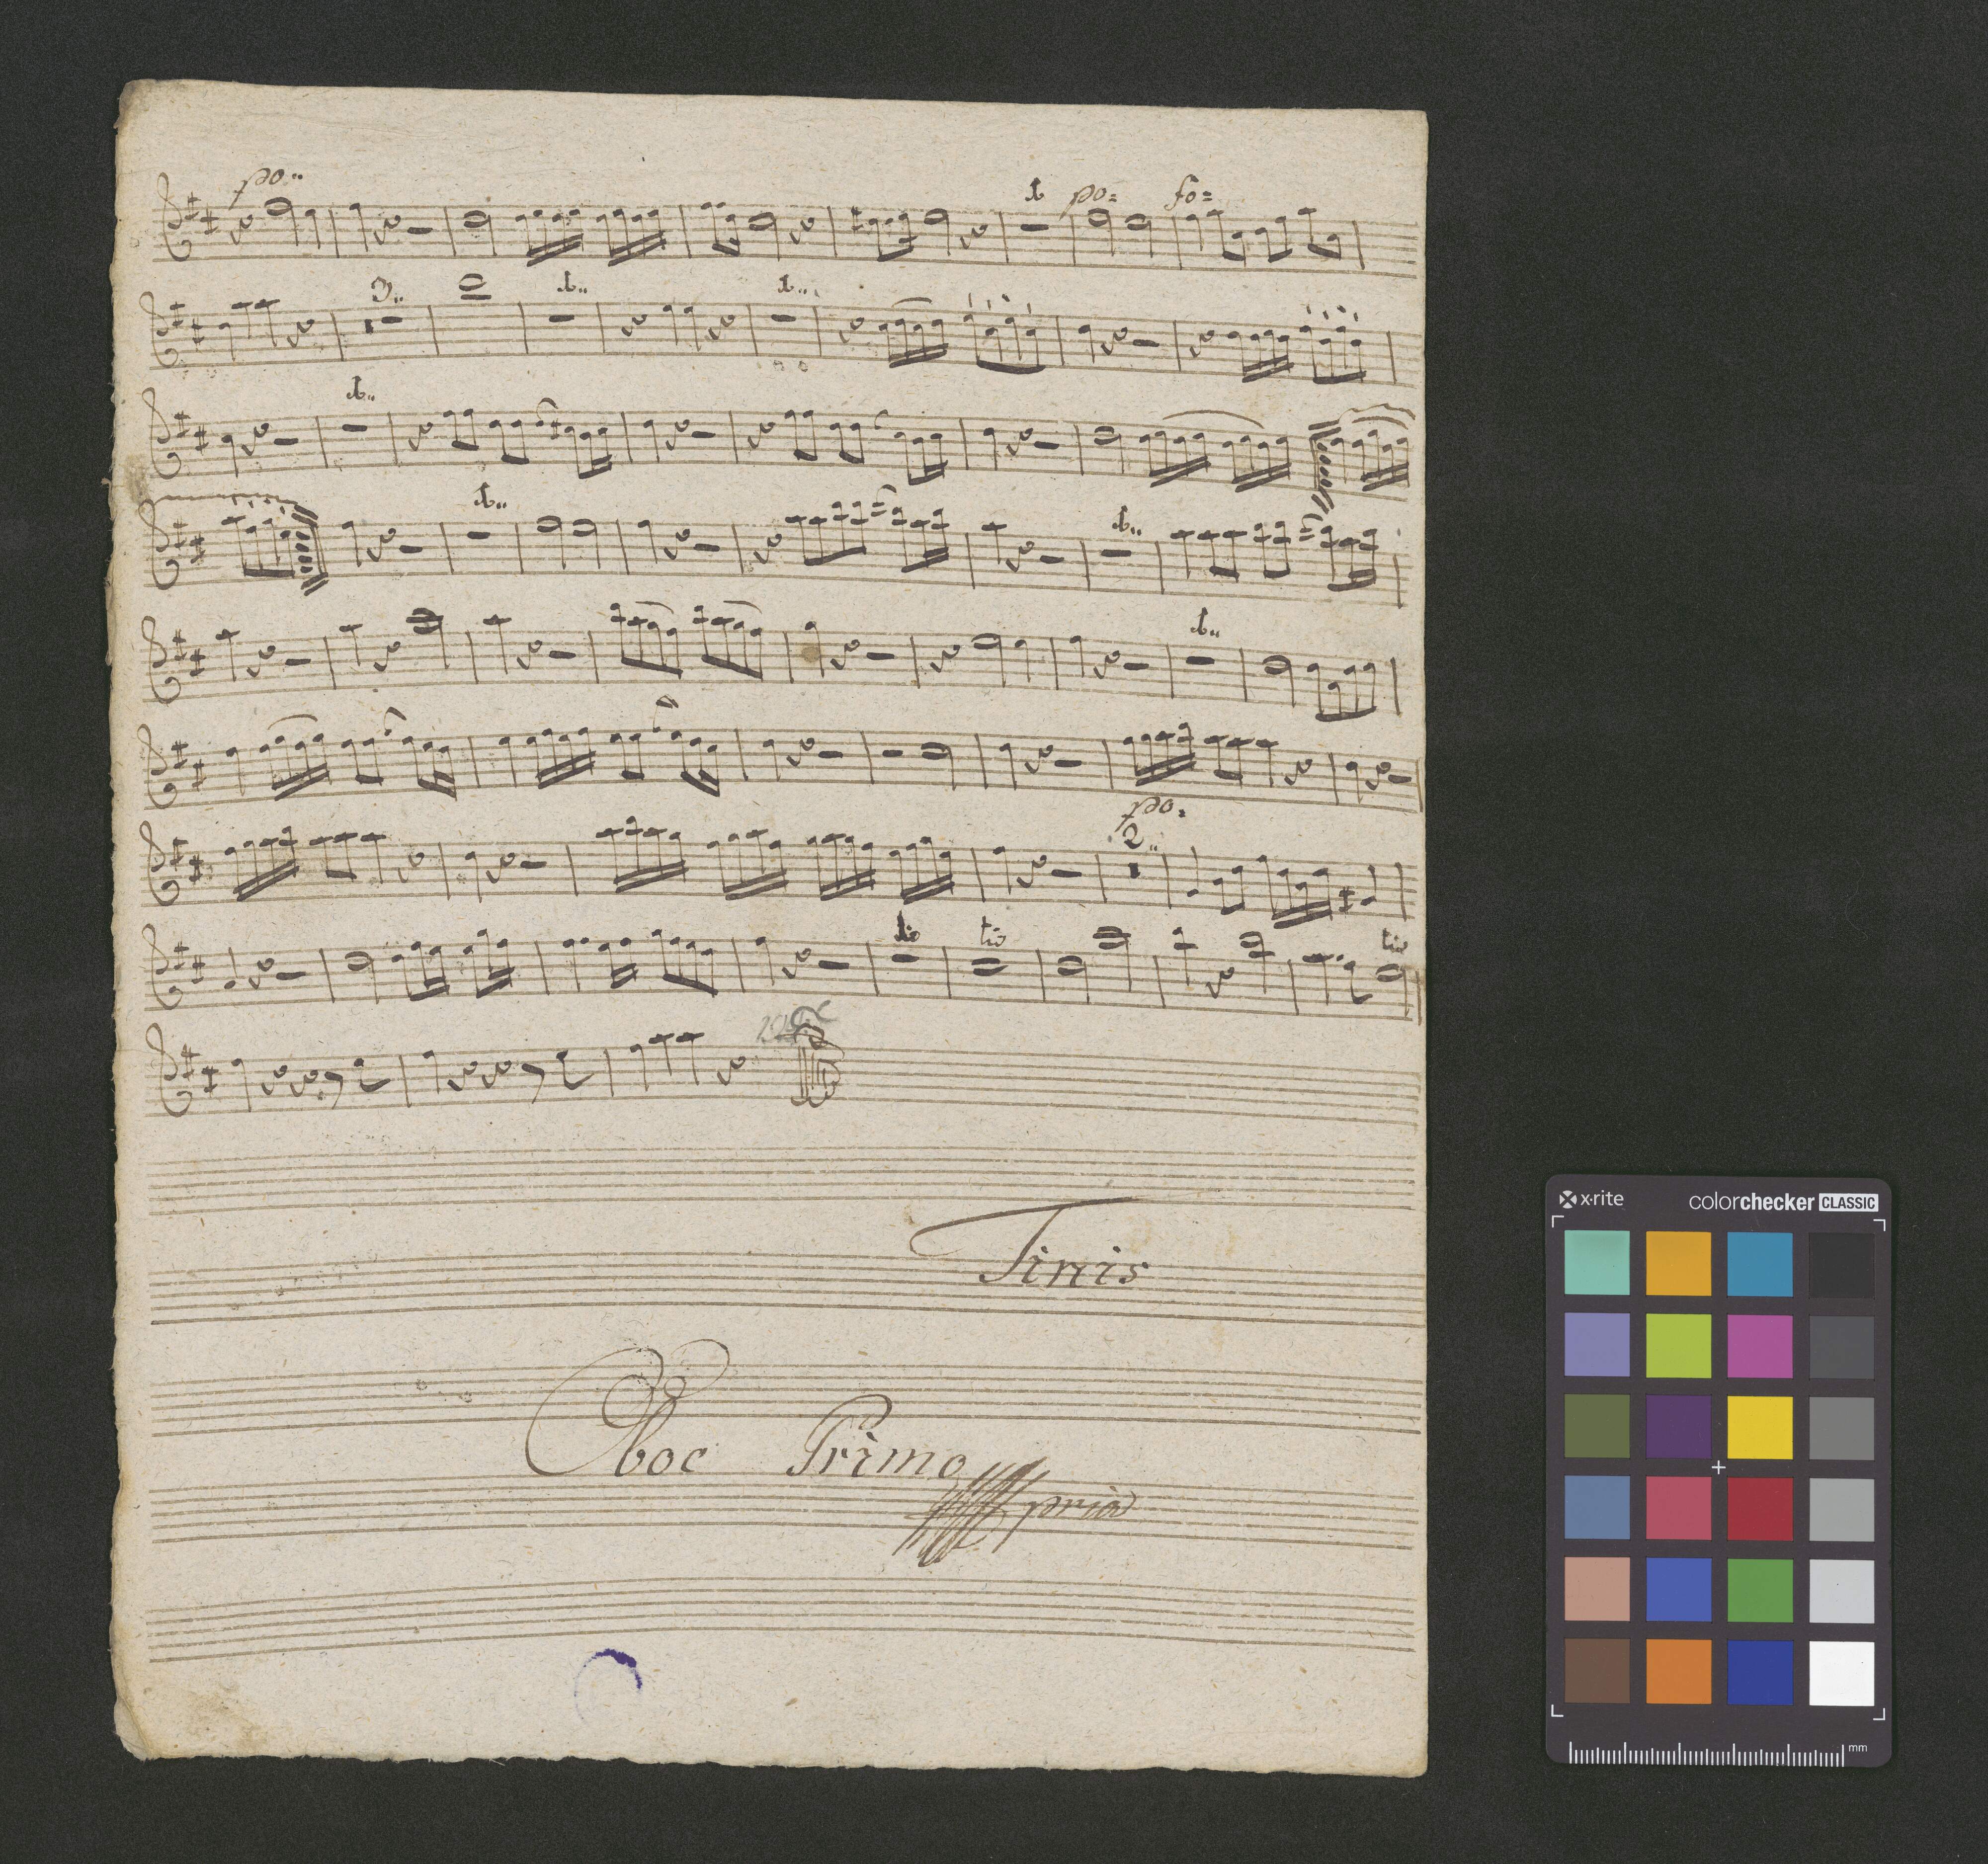 po..
1 po= fo=
3.. 1.. 1..
1..
1.. 1..
1..
po.
2..
tr tr tr
Finis
Oboe Primo
pria
x·rite colorchecker CLASSIC
mm